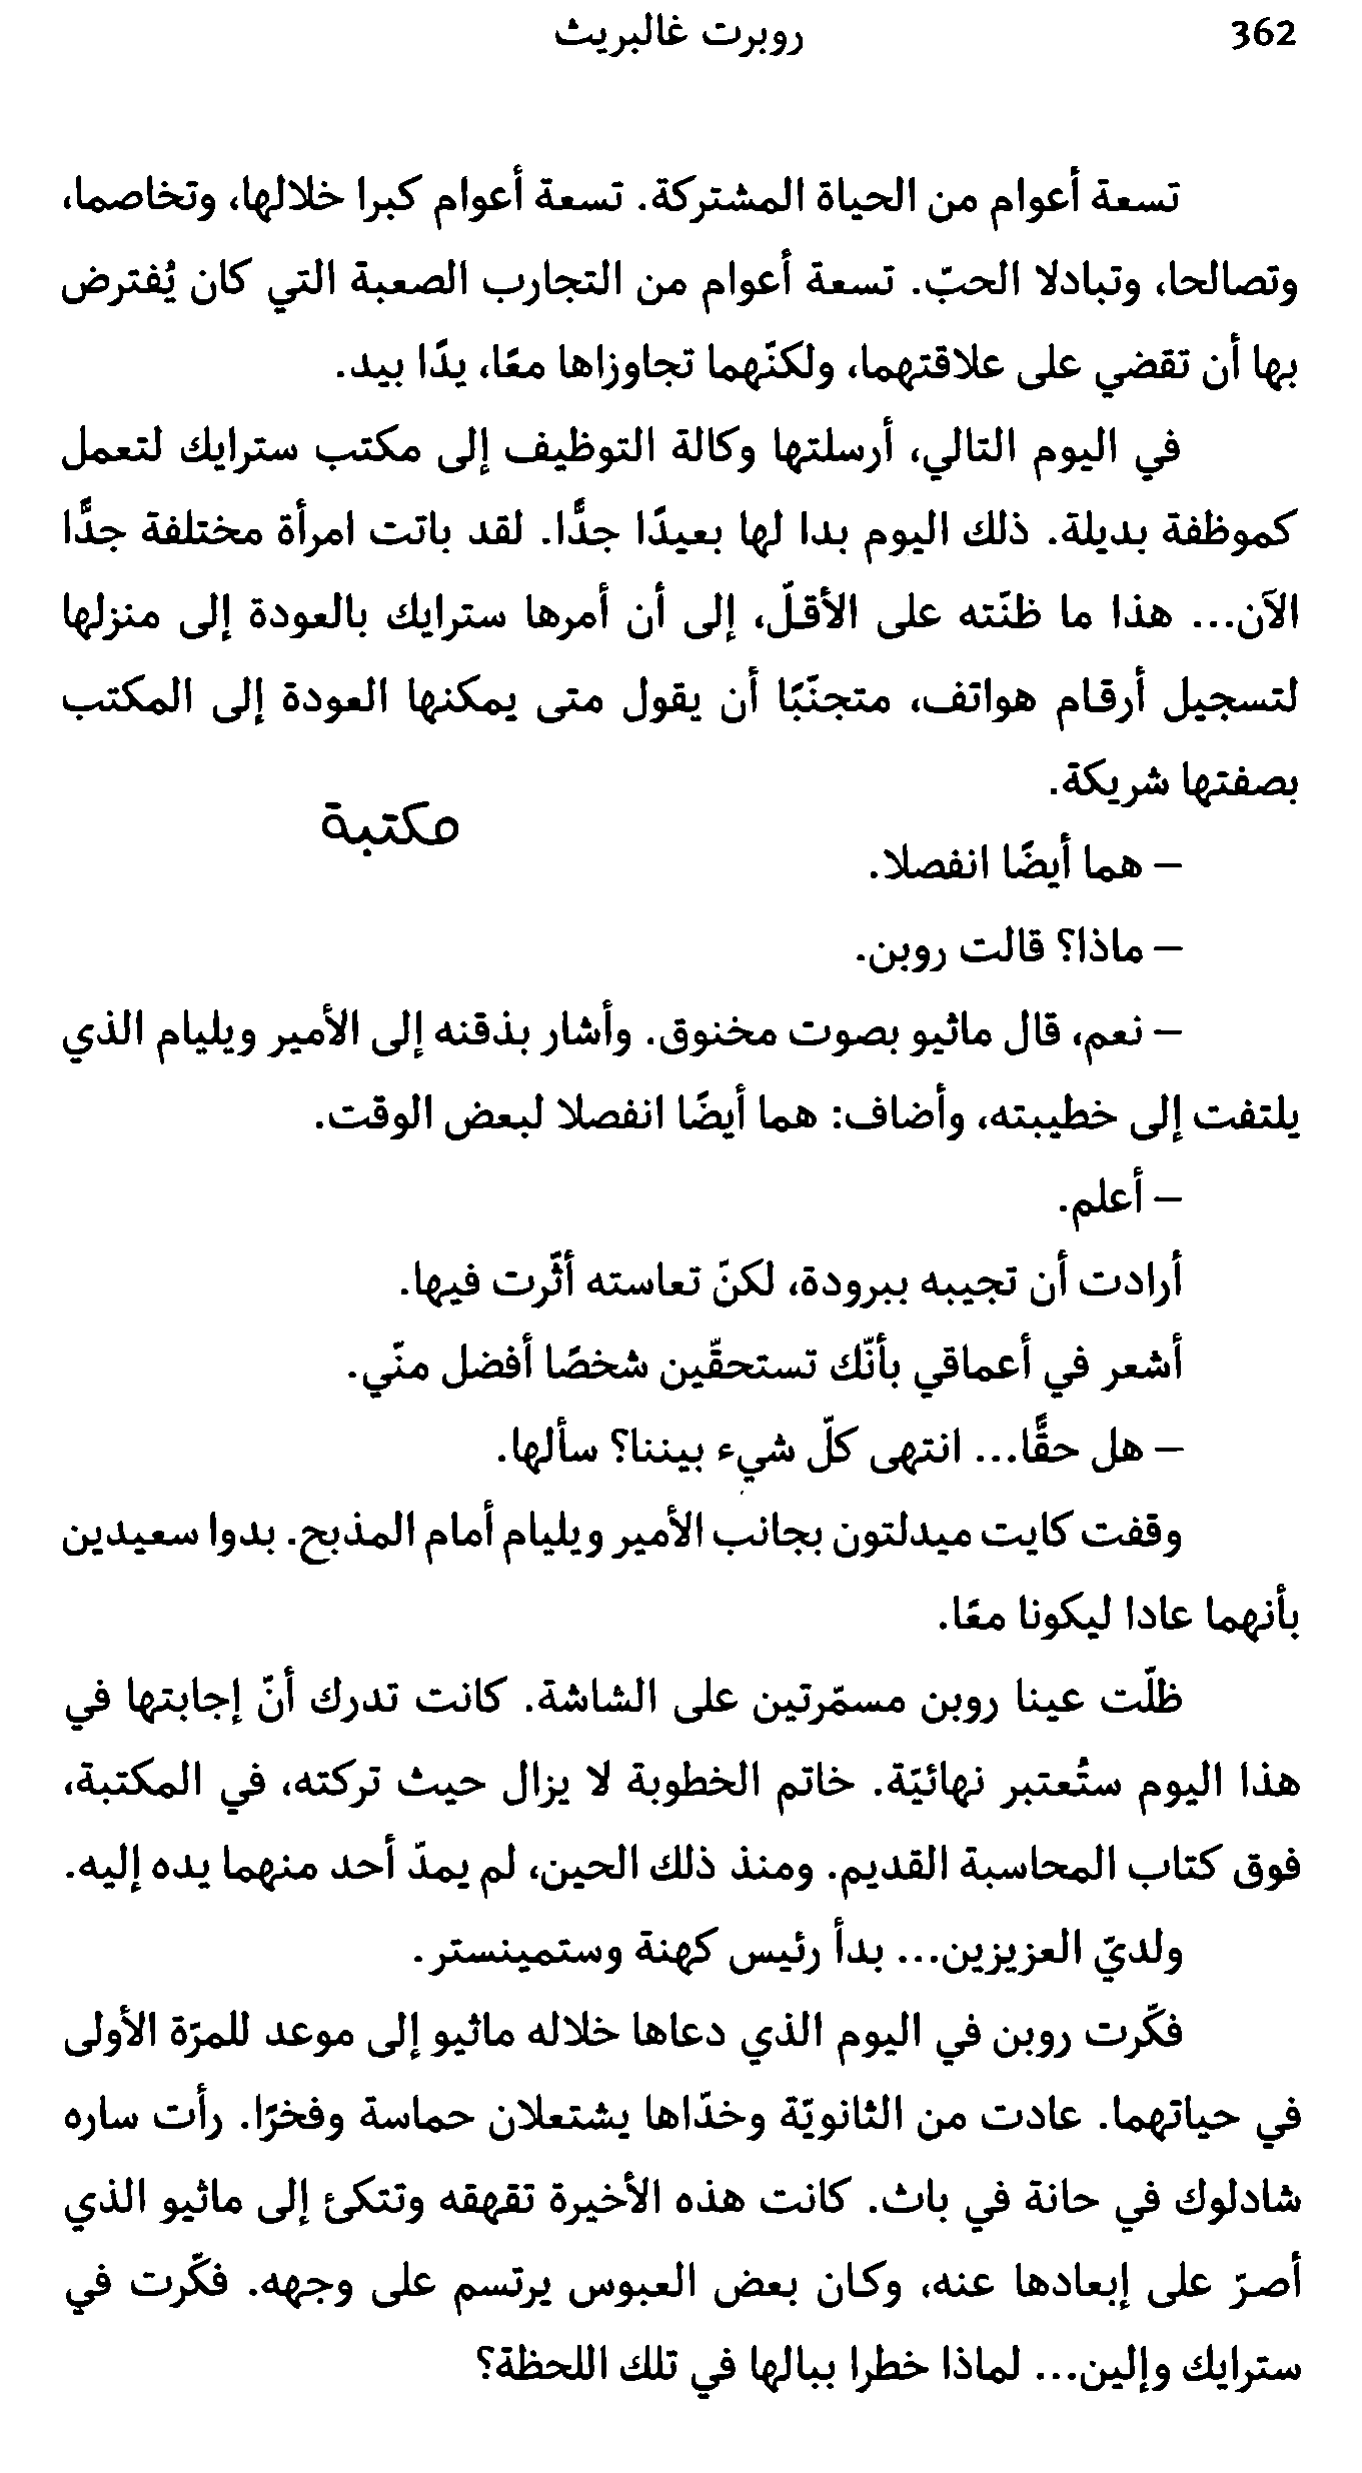 362
روبرت غالبريث
تسعة أعوام من الحياة المشتركة. تسعة أعوام كبرا خلالها، وتخاصما،
وتصالحا، وتبادلا الحبّ. تسعة أعوام من التجارب الصعبة التي كان يُفترض
بها أن تقضي على علاقتهما، ولكنّهما تجاوزاها معًا، يدًا بيد.
في اليوم التالي، أرسلتها وكالة التوظيف إلى مكتب سترايك لتعمل
كموظفة بديلة. ذلك اليوم بدا لها بعيدًا جدًّا. لقد باتت امرأة مختلفة جدًّا
الآن... هذا ما ظنّته على الأقلّ، إلى أن أمرها سترايك بالعودة إلى منزلها
لتسجيل أرقام هواتف، متجنّبًا أن يقول متى يمكنها العودة إلى المكتب
بصفتها شريكة.
مكتبة
– هما أيضًا انفصلا.
– ماذا؟ قالت روبن.
– نعم، قال ماثيو بصوت مخنوق. وأشار بذقنه إلى الأمير ويليام الذي
يلتفت إلى خطيبته، وأضاف: هما أيضًا انفصلا لبعض الوقت.
– أعلم.
أرادت أن تجيبه ببرودة، لكنّ تعاسته أثّرت فيها.
أشعر في أعماقي بأنّك تستحقّين شخصًا أفضل منّي.
– هل حقًّا... انتهى كلّ شيء بيننا؟ سألها.
وقفت كايت ميدلتون بجانب الأمير ويليام أمام المذبح. بدوا سعيدين
بأنهما عادا ليكونا معًا.
ظلّت عينا روبن مسمّرتين على الشاشة. كانت تدرك أنّ إجابتها في
هذا اليوم ستُعتبر نهائيّة. خاتم الخطوبة لا يزال حيث تركته، في المكتبة،
فوق كتاب المحاسبة القديم. ومنذ ذلك الحين، لم يمدّ أحد منهما يده إليه.
ولديّ العزيزين... بدأ رئيس كهنة وستمينستر.
فكّرت روبن في اليوم الذي دعاها خلاله ماثيو إلى موعد للمرّة الأولى
في حياتهما. عادت من الثانويّة وخدّاها يشتعلان حماسة وفخرًا. رأت ساره
شادلوك في حانة في باث. كانت هذه الأخيرة تقهقه وتتكئ إلى ماثيو الذي
أصرّ على إبعادها عنه، وكان بعض العبوس يرتسم على وجهه. فكّرت في
سترايك وإلين... لماذا خطرا ببالها في تلك اللحظة؟